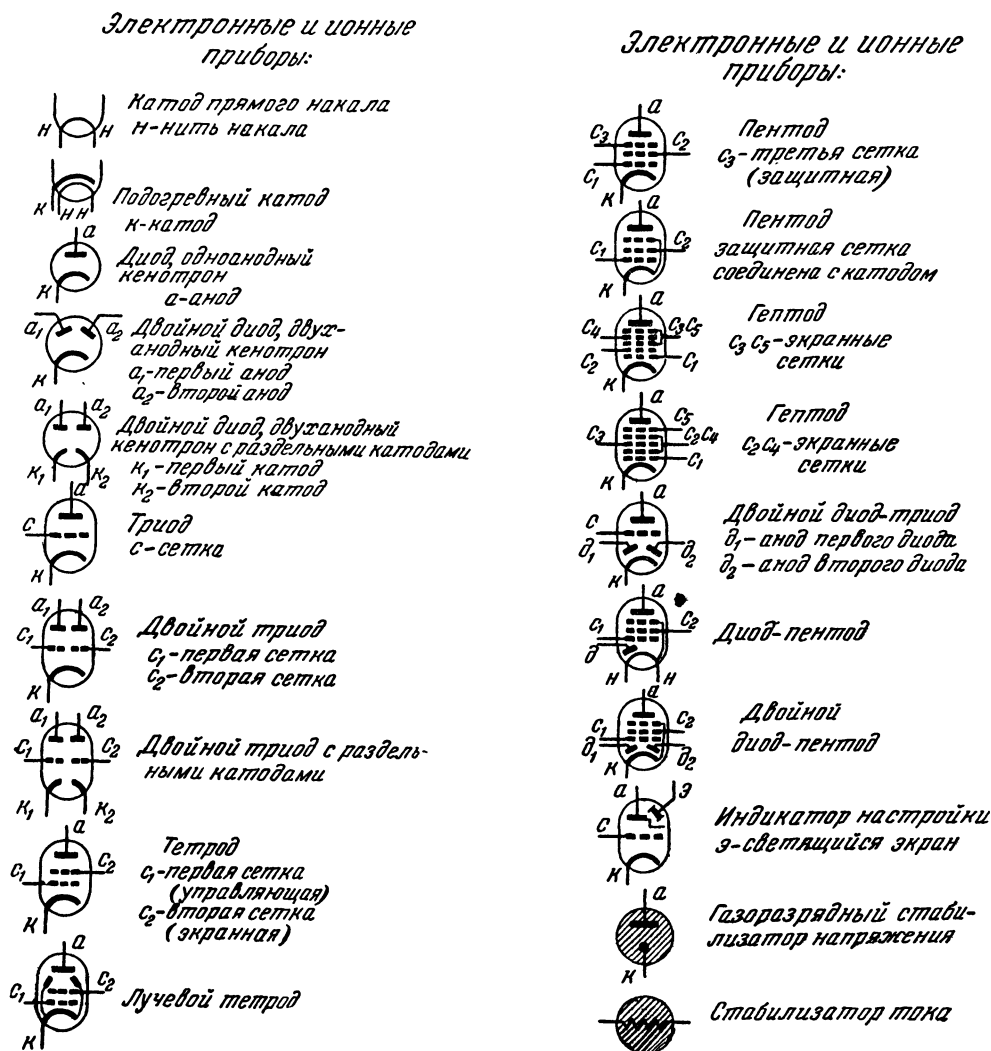 Электронные и ионные
приборы:
Катод прямого накала
н-нить накала
н н
Подогревный катод
к-катод
к н н
а
Диод, одноанодный
кенотрон
а-анод
к
а₁ а₂
Двойной диод, двух-
анодный кенотрон
а₁-первый анод
а₂-второй анод
к
а₁ а₂
Двойной диод, двуханодный
кенотрон с раздельными катодами
к₁-первый катод
к₂-второй катод
к₁ к₂
а
Триод
с-сетка
с
к
а₁ а₂
Двойной триод
с₁-первая сетка
с₂-вторая сетка
с₁ с₂
к
а₁ а₂
Двойной триод с раздель-
ными катодами
с₁ с₂
к₁ к₂
а
Тетрод
с₁-первая сетка
(управляющая)
с₂-вторая сетка
(экранная)
с₂
с₁
к
а
Лучевой тетрод
с₁ с₂
к
Электронные и ионные
приборы:
а
Пентод
с₃-третья сетка
(защитная)
с₃ с₂
с₁
к
а
Пентод
защитная сетка
соединена с катодом
с₁ с₂
к
а
Гептод
с₃ с₅-экранные
сетки
с₄ с₃с₅
с₂ с₁
к
а
Гептод
с₂с₄-экранные
сетки
с₅
с₃ с₂с₄
с₁
к
а
Двойной диод-триод
д₁-анод первого диода
д₂-анод второго диода
с
д₁ д₂
к
а
Диод-пентод
с₁ с₂
д
н н
а
Двойной
диод-пентод
с₁ с₂
д₁ д₂
к
а э
Индикатор настройки
э-светящийся экран
с
к
а
Газоразрядный стаби-
лизатор напряжения
к
Стабилизатор тока